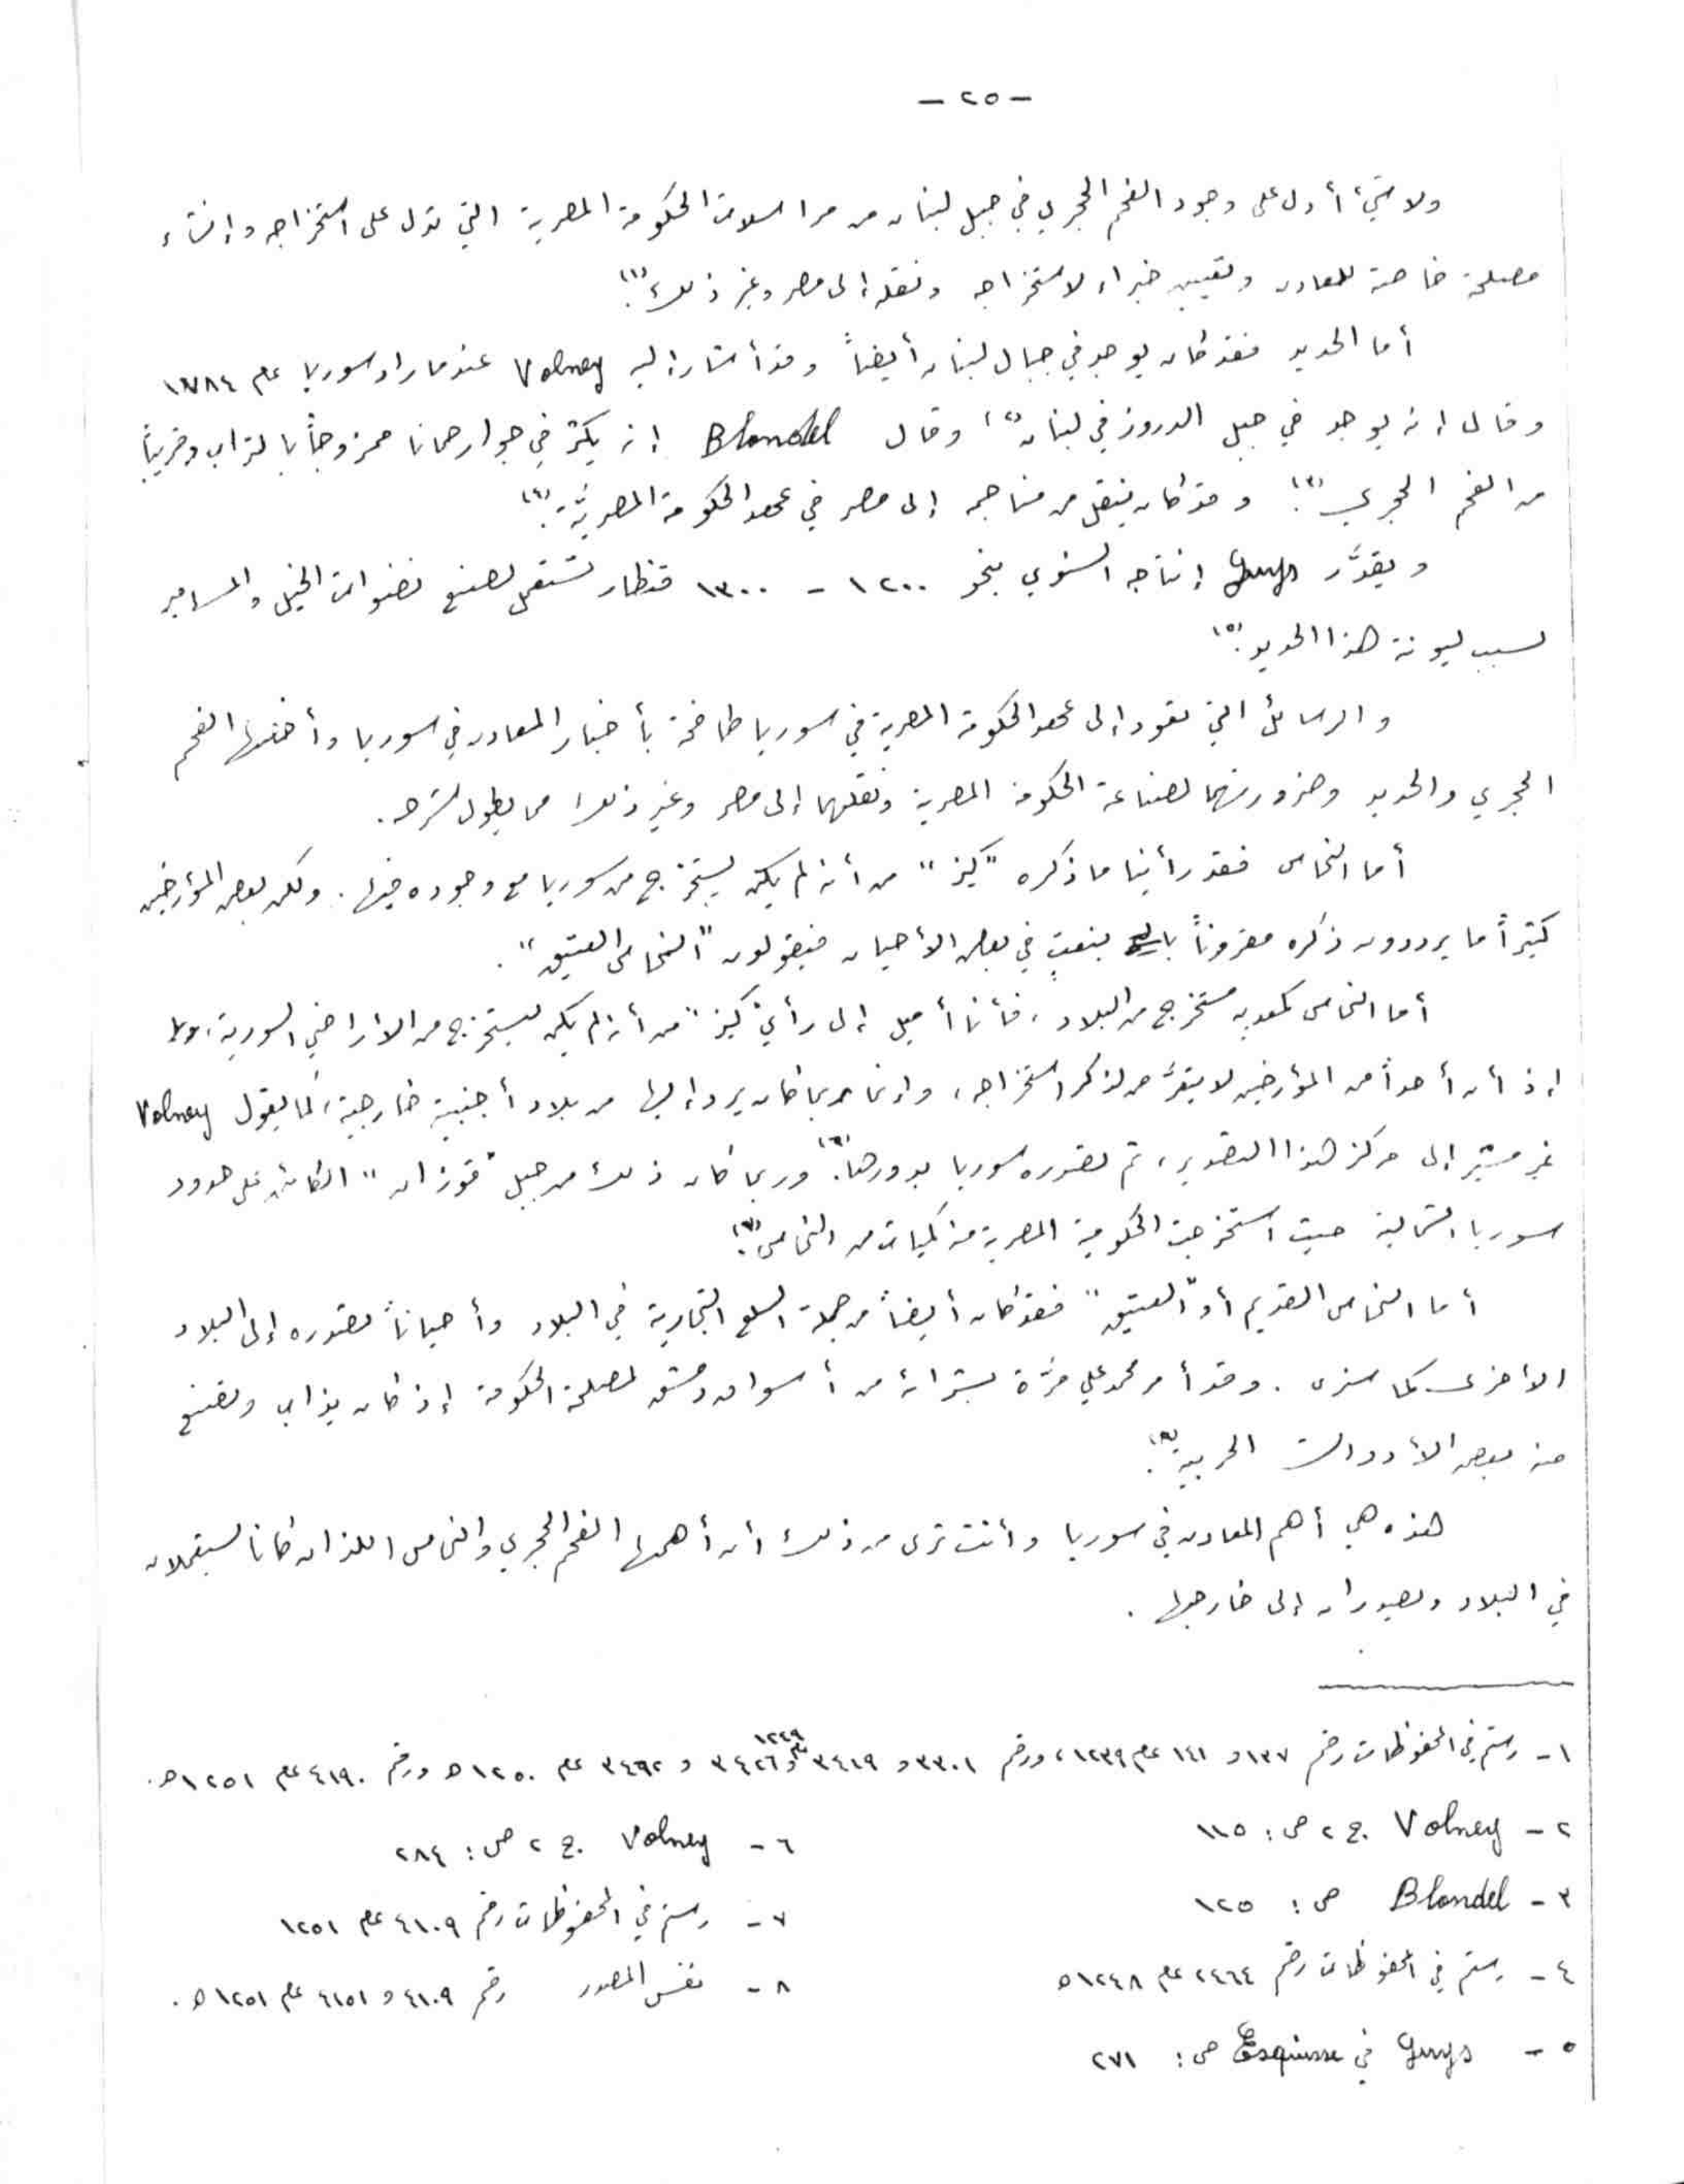 - ٢٥ -
ولا شيء أدل على وجود الفحم الحجري في جبل لبنان من مراسلات الحكومة المصرية التي تدل على استخراجه وإنشاء
مصلحة خاصة للمعادن وتعيين خبراء لاستخراجه ونقله إلى مصر وغير ذلك (١).
أما الحديد فقد كان يوجد في جبال لبنان أيضاً وقد أشار إليه Volney عندما زار سوريا عام ١٧٨٤
وقال إنه يوجد في جبل الدروز في لبنان (٢)، وقال Blondel إنه يكثر في جوار حمانا ممزوجاً بالتراب وقريباً
من الفحم الحجري (٣). وقد كان ينقل من مناجمه إلى مصر في عهد الحكومة المصريَّة (٤).
ويقدَّر Guys إنتاجه السنوي بنحو ١٢٠٠ - ١٣٠٠ قنطار تستعمل لصنع نضوات الخيل والمسامير
لسبب ليونة هذا الحديد (٥).
والرسائل التي تعود إلى عهد الحكومة المصرية في سوريا طافحة بأخبار المعادن في سوريا وأخصها الفحم
الحجري والحديد وضرورتهما لصناعة الحكومة المصرية ونقلهما إلى مصر وغير ذلك مما يطول شرحه.
أما النحاس فقد رأينا ما ذكره "كيز" من أنه لم يكن يستخرج من سوريا مع وجوده فيها. ولكن بعض المؤرخين
كثيراً ما يرددون ذكره مقروناً بنعتٍ في بعض الأحيان فيقولون "النحاس العتيق".
أما النحاس كمعدن مستخرج من البلاد، فأنا أميل إلى رأي "كيز" من أنه لم يكن يستخرج من الأراضي السورية،
إذ أن أحداً من المؤرخين لا يتعرَّض لذكر استخراجه، وإنما ربما كان يرد إليها من بلاد أجنبية خارجية، كما يقول Volney
غير مشير إلى مركز هذا التصدير، ثم تصدره سوريا بدورها (٦). وربما كان ذلك من جبل "قوزان" الكائن على حدود
سوريا الشمالية حيث استخرجت الحكومة المصرية منه كميات من النحاس (٧).
أما النحاس القديم أو "العتيق" فقد كان أيضاً من جملة السلع التجارية في البلاد وأحياناً تصدره إلى البلاد
الأخرى كما سنرى. وقد أمر محمد علي مرَّة بشرائه من أسواق دمشق لمصلحة الحكومة إذ كان يذاب وتصنع
منه بعض الأدوات الحربية (٨).
هذه هي أهم المعادن في سوريا وأنت ترى من ذلك أن أهمها الفحم الحجري والنحاس اللذان كانا يستعملان
في البلاد ويصدران إلى خارجها.
١- رستم في المحفوظات رقم ١٣٧ و ١٤١ عام ١٢٣٩، ورقم ٣٣٠١ و ٣٤١٩ عام ١٢٤٩ و ٣٤٢٦ و ٣٤٩٢ عام ١٢٥٠ ه ورقم ٤١٩٠ عام ١٢٥١ ه.
٢- Volney ج ٢ ص: ١١٥
٣- Blondel ص: ١٢٥
٤- رستم في المحفوظات رقم ٢٤٦٤ عام ١٢٤٨ ه
٥- Guys في Esquisse ص: ٢٧١
٦- Volney ج ٢ ص: ٢٨٤
٧- رستم في المحفوظات رقم ٤١٠٩ عام ١٢٥١
٨- نفس المصدر رقم ٤١٠٩ و ٤١٥١ عام ١٢٥١ ه.